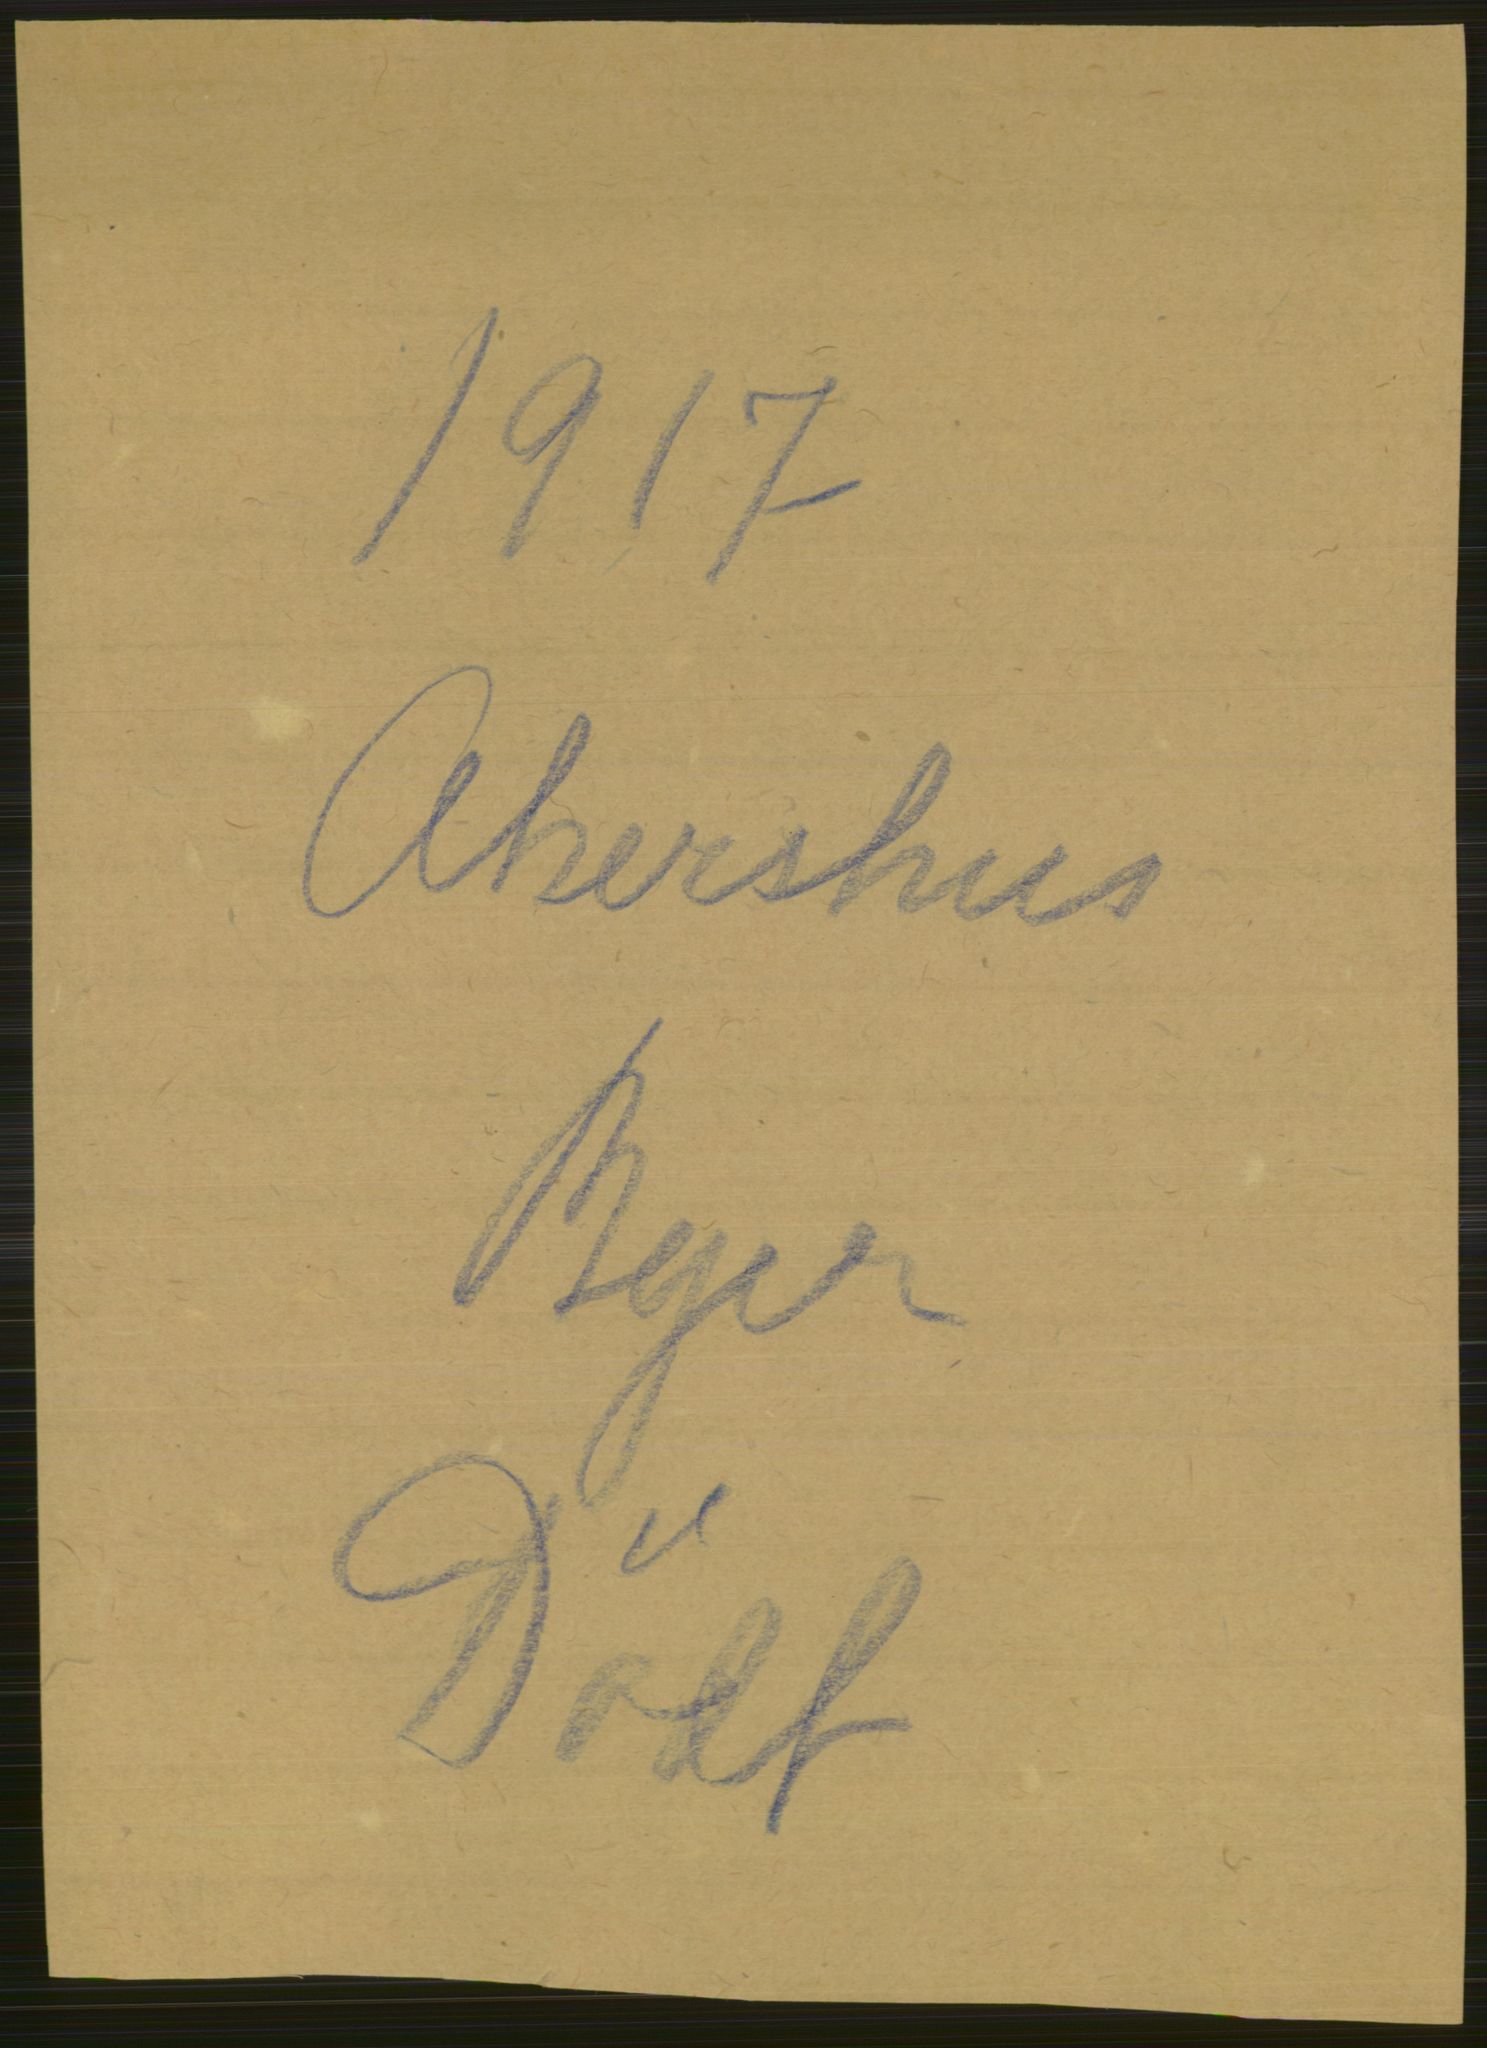 1917
Akershus
Byer
Död